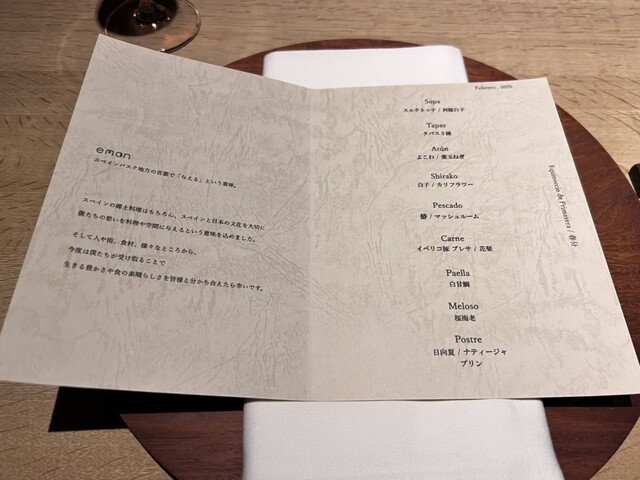 eman
スペインバスク地方の言葉で「与える」という意味。
スペインの郷土料理はもちろん、スペインと日本の文化を大切に
僕たちの想いを料理や空間に与えるという意味を込めました。
そして人や街、食材、様々なところから、
今度は僕たちが受け取ることで
生きる豊かさや食の素晴らしさを皆様と分かち合えたら幸いです。
Febrero , 2025
Sopa
エルクトゥナ / 阿蘇白子
Tapas
タパス3種
Atún
よこわ / 葉玉ねぎ
Shirako
白子 / カリフラワー
Pescado
鰆 / マッシュルーム
Carne
イベリコ豚 プレサ / 花梨
Paella
白甘鯛
Meloso
桜海老
Postre
日向夏 / ナティージャ
プリン
Equinoccio de Primavera / 春分